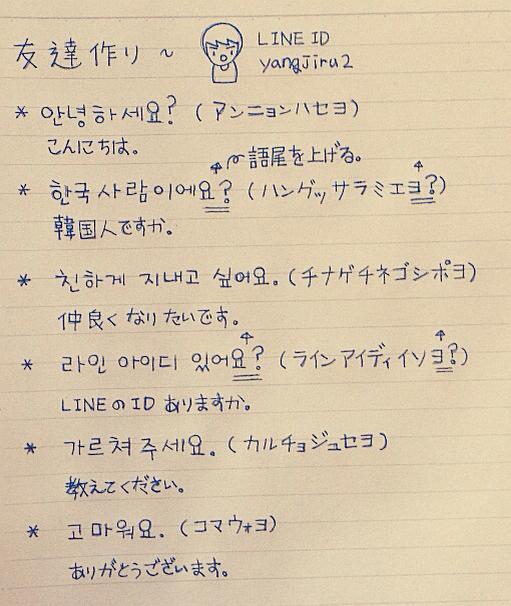 友達作り ~
LINE ID
yangjiru2
* 안녕하세요? (アンニョンハセヨ)
こんにちは。
語尾を上げる。
* 한국사람이에요? (ハングッサラミエヨ?)
韓国人ですか。
* 친하게 지내고 싶어요. (チナゲチネゴシポヨ)
仲良くなりたいです。
* 라인 아이디 있어요? (ラインアイディイソヨ?)
LINEのIDありますか。
* 가르쳐주세요. (カルチョジュセヨ)
教えてください。
* 고마워요. (コマウォヨ)
ありがとうございます。